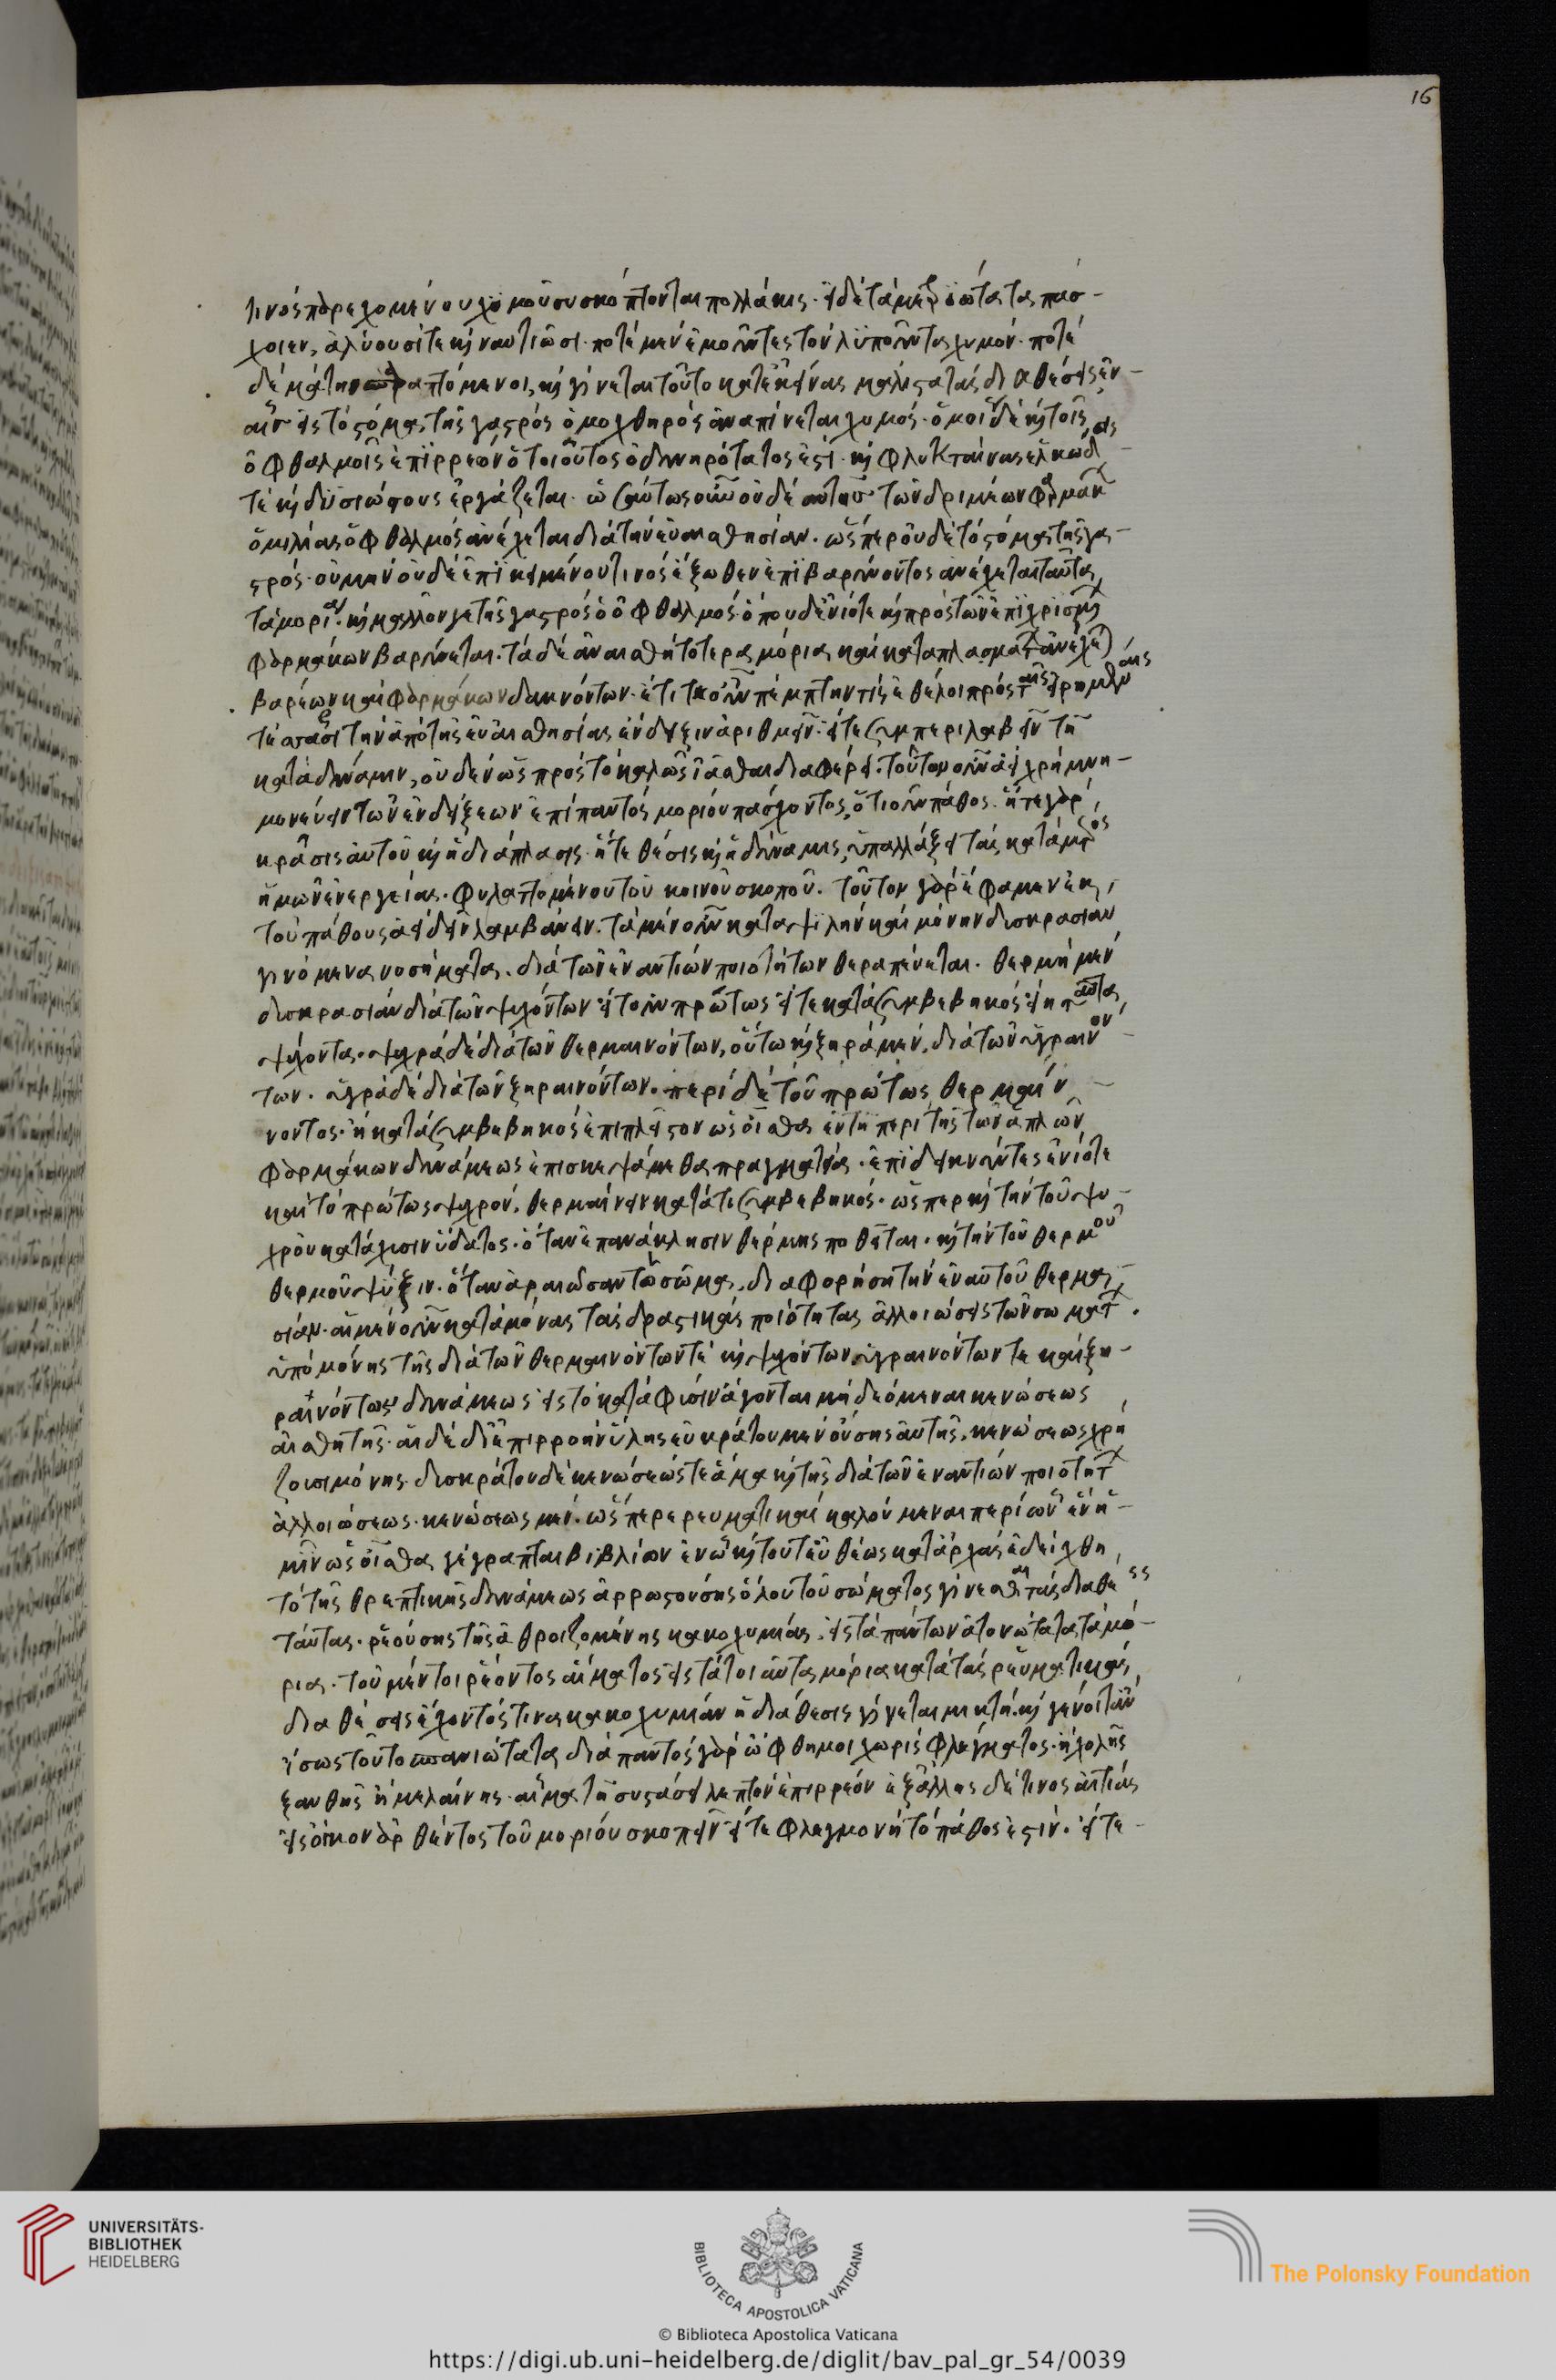 16
τινὸς περιεχομένου χυμοῦ συγκόπτονται πολλάκις. εἰ δὲ τὰ μετριώτατα πάσ-
χοιεν, ἀλύουσί τε καὶ ναυτιῶσι. ποτὲ μὲν ἐμοῦντες τὸν λυποῦντα χυμόν. ποτὲ
δὲ μάτην σπαραττόμενοι, καὶ γίνεται τοῦτο κατ' ἐκείνας μάλιστα τὰς διαθέσεις ἐν
αἷς εἰς τὸ στόμα τῆς γαστρὸς ὁ μοχθηρὸς ἀναπίνεται χυμός. ὅμοιον δὲ καὶ τοῖς
ὀφθαλμοῖς ἐπιρρεῖον ὁ τοιοῦτος ὀδυνηρότατός ἐστι. καὶ φλυκταίνας ἑλκώδεις
τε καὶ δυσιάτους ἐργάζεται. ὡσαύτως οὖν οὐδὲ αὐτῆς τῶν δριμέων φαρμάκων
ὁμιλίας ὀφθαλμὸς ἀνέχεται διὰ τὴν εὐαισθησίαν. ὥσπερ οὐδὲ τὸ στόμα τῆς γα-
στρός. οὐ μὴν οὐδὲ ἐπικειμένου τινὸς ἔξωθεν ἐπὶ βαρύνοντος ἀνέχεται ταῦτα
τὰ μόρια. καὶ μᾶλλόν γε τῆς γαστρὸς ὁ ὀφθαλμός. ὅπου δὲ ἐνίοτε καὶ πρὸς τῶν ἐπιχρίστων
φαρμάκων βαρύνεται. τὰ δὲ ἀναισθητότερα μόρια καὶ καταπλασμάτων ἀνέχεται
βαρέων καὶ φαρμάκων δακνόντων. εἴτε οὖν πέμπτην τὶς ἐθέλοι πρὸς ταῖς εἰρημέναις
τέτταρσι τὴν ἀπὸ τῆς εὐαισθησίας ἔνδειξιν ἀριθμεῖν. εἴτε συμπεριλαβεῖν τῇ
κατὰ δύναμιν, οὐδὲν ὡς πρὸς τὸ καλῶς ἰᾶσθαι διαφέρει. τούτου οὖν ἀεὶ χρὴ μνη-
μονεύειν τῶν ἐνδείξεων ἐπὶ παντὸς μορίου πάσχοντος ὁτιοῦν πάθος. ἥ τε γὰρ
κρᾶσις αὐτοῦ καὶ ἡ διάπλασις. ἥ τε θέσις καὶ ἡ δύναμις, ὑπαλλάξει τὰς κατὰ μέρος
ἡμῶν ἐνεργείας. φυλαττομένου τοῦ κοινοῦ σκοποῦ. τοῦτον γὰρ ἔφαμεν ἐκ
τοῦ πάθους ἀεὶ δεῖν λαμβάνειν. τὰ μὲν οὖν κατὰ ψιλὴν καὶ μόνην δυσκρασίαν
γινόμενα νοσήματα. διὰ τῶν ἐναντίων ποιοτήτων θεραπεύεται. θερμὴ μὲν
δυσκρασίαν διὰ τῶν ψυχόντων εἴτ' οὖν πρώτως εἴτε κατὰ συμβεβηκὸς εἴη ταῦτα
ψύχοντα. ψυχρὰ δὲ διὰ τῶν θερμαινόντων, οὕτω καὶ ξηρὰ μὲν, διὰ τῶν ὑγραινόν-
των. ὑγρὰ δὲ διὰ τῶν ξηραινόντων. περὶ δὲ τοῦ πρώτως θερμαίν-
νοντος. ἢ κατὰ συμβεβηκὸς ἐπιπλεῖστον ὡς οἶσθα ἐν τῇ περὶ τῆς τῶν ἁπλῶν
φαρμάκων δυνάμεως ἐπισκεψάμεθα πραγματεία. ἐπιδεικνύντες ἐνίοτε
καὶ τὸ πρώτως ψυχρόν, θερμαίνειν κατά τι συμβεβηκός. ὥσπερ καὶ τὴν τοῦ ψυ-
χροῦ κατάχυσιν ὕδατος. ὅταν ἐπανάκλησιν θέρμης ποιεῖται. καὶ τὴν τοῦ θερμοῦ
θερμοῦ ψύξιν. ὅταν ἀραιῶσαν τὸ σῶμα, διαφορήσῃ τὴν ἐν αὐτοῦ θερμα-
σίαν. αἱ μὲν οὖν κατὰ μόνας τὰς δραστικὰς ποιότητας ἀλλοιώσεις τῶν σωμάτων.
ὑπὸ μόνης τῆς διὰ τῶν θερμαινόντων τε καὶ ψυχόντων ὑγραινόντων τε καὶ ξη-
ραινόντων δυνάμεως εἰς τὸ κατὰ φύσιν ἄγονται μὴ δεόμεναι κενώσεως
αἰσθητῆς. αἱ δὲ δι' ἐπιρροὴν ὕλης εὐκράτου μὲν οὔσης αὐτῆς, κενώσεως χρῄ
ζουσι μόνης. δυσκράτου δὲ κενώσεώς τε ἅμα καὶ τῆς διὰ τῶν ἐναντίων ποιοτήτων
ἀλλοιώσεως. κενώσεως μὲν. ὥσπερ ρευματικαὶ καλούμεναι περὶ ὧν ἓν ἡ-
μῖν ὡς οἶσθα γέγραπται βιβλίον ἐν ᾧ καὶ τοῦτ' εὐθέως κατ' ἀρχὰς ἐδείχθη
τὸ τῆς θρεπτικῆς δυνάμεως ἀρρωστούσης ὅλου τοῦ σώματος γίνεσθαι τὰς διαθέσεις
ταύτας. ῥεούσης τῆς ἀθροιζομένης κακοχυμίας. εἰς τὰ πάντων ἀτονώτατα τὰ μό-
ρια. τοῦ μέντοι ῥέοντος αἵματος εἰς τὰ τοιαῦτα μόρια κατὰ τὰς ρευματικὰς
διαθέσεις ἔχοντός τινα κακοχυμίαν ἡ διάθεσις γίνεται μικτή. καὶ γένοιτ' ἂν
ἴσως τοῦτο σπανιώτατα διὰ παντὸς γὰρ ὤφθη μοι χωρὶς φλέγματος. ἢ χολῆς
ξανθῆς ἢ μελαίνης. αἷμα τῇ συστάσει λεπτὸν ἐπιρρέον ἐξ ἄλλης δέ τινος αἰτίας
εἰς ὄγκον ἀρθέντος τοῦ μορίου σκοπεῖν εἴτε φλεγμονὴ τὸ πάθος ἐστίν. εἴτε
UNIVERSITÄTS-
BIBLIOTHEK
HEIDELBERG
BIBLIOTECA APOSTOLICA VATICANA
The Polonsky Foundation
© Biblioteca Apostolica Vaticana
https://digi.ub.uni-heidelberg.de/diglit/bav_pal_gr_54/0039